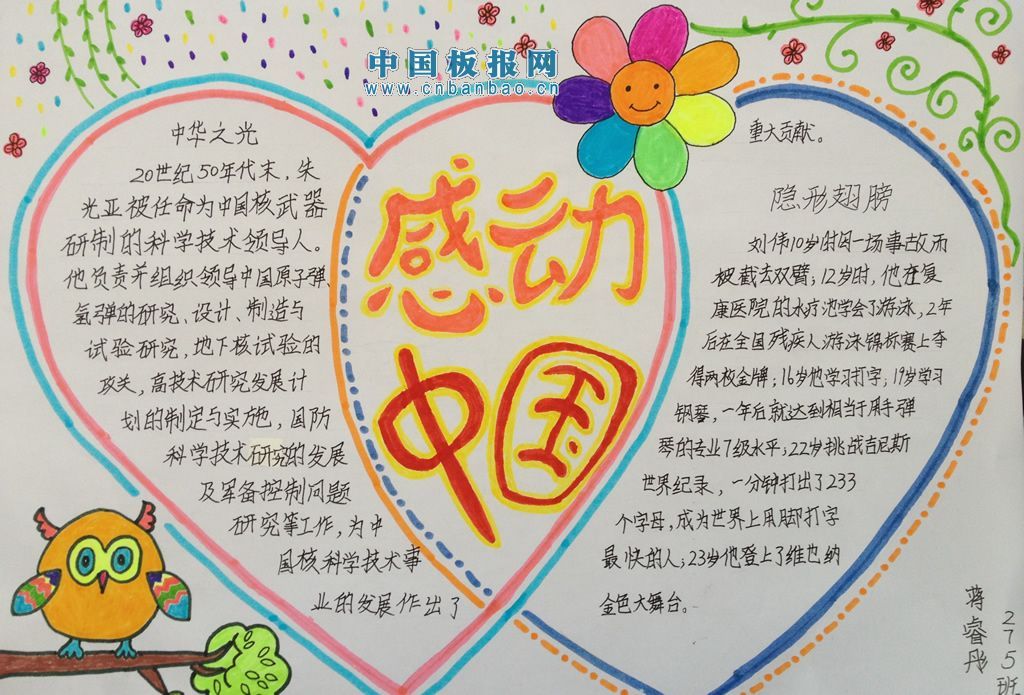 中国板报网
www.cnbanbao.cn
中华之光
20世纪50年代末，朱
光亚被任命为中国核武器
研制的科学技术领导人。
他负责并组织领导中国原子弹、
氢弹的研究、设计、制造与
试验研究，地下核试验的
攻关，高技术研究发展计
划的制定与实施，国防
科学技术研究的发展
及军备控制问题
研究等工作，为中
国核科学技术事
业的发展作出了
重大贡献。
感动
中国
隐形翅膀
刘伟10岁时因一场事故而
被截去双臂；12岁时，他在复
康医院的水疗池学会了游泳，2年
后在全国残疾人游泳锦标赛上夺
得两枚金牌；16岁他学习打字；19岁学习
钢琴，一年后就达到相当于用手弹
琴的专业7级水平；22岁挑战吉尼斯
世界纪录，一分钟打出了233
个字母，成为世界上用脚打字
最快的人；23岁他登上了维也纳
金色大舞台。
275班
蒋睿彤